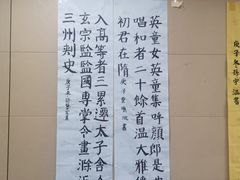 英童女英童集呼顏郎是
唱和者二十餘首溫大雅傳
初君在隋
入高等者三累遷太子舍人
玄宗監國專掌令畫滁沂
三州刺史